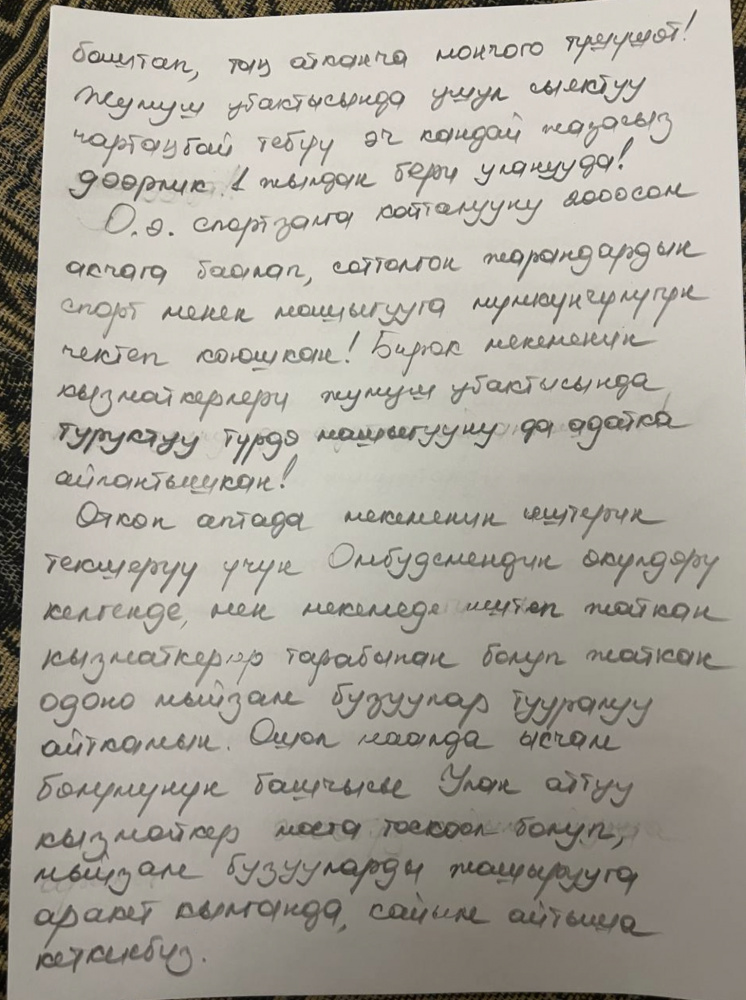 баштап, таң атканча мончого түшүшөт!
Жумуш убактысында ушул сыяктуу
чартаңбай тебүү эч кандай жазасыз
доорлик 1 жылдан бери уланууда!
О.э. спортзалга катталууну 2000сом
акчага баалап, соттолгон жарандардын
спорт менен машыгууга мүмкүнчүлүгүн
чектеп коюшкан! Бирок мекеменин
кызматкерлери жумуш убактысында
туруктуу түрдө машыгууну да адатка
айлантышкан!
Өткөн аптада мекеменин иштерин
текшерүү үчүн Омбудсмендин өкүлдөрү
келгенде, мен мекемеде иштеп жаткан
кызматкерлер тарабынан болуп жаткан
одоно мыйзам бузуулар тууралуу
айткамын. Ошол маалда ысчам
бөлүмүнүн башчысы Улан аттуу
кызматкер мага тоскоол болуп,
мыйзам бузууларды жашырууга
аракет кылганда, сайым айтыша
кеткенбиз.